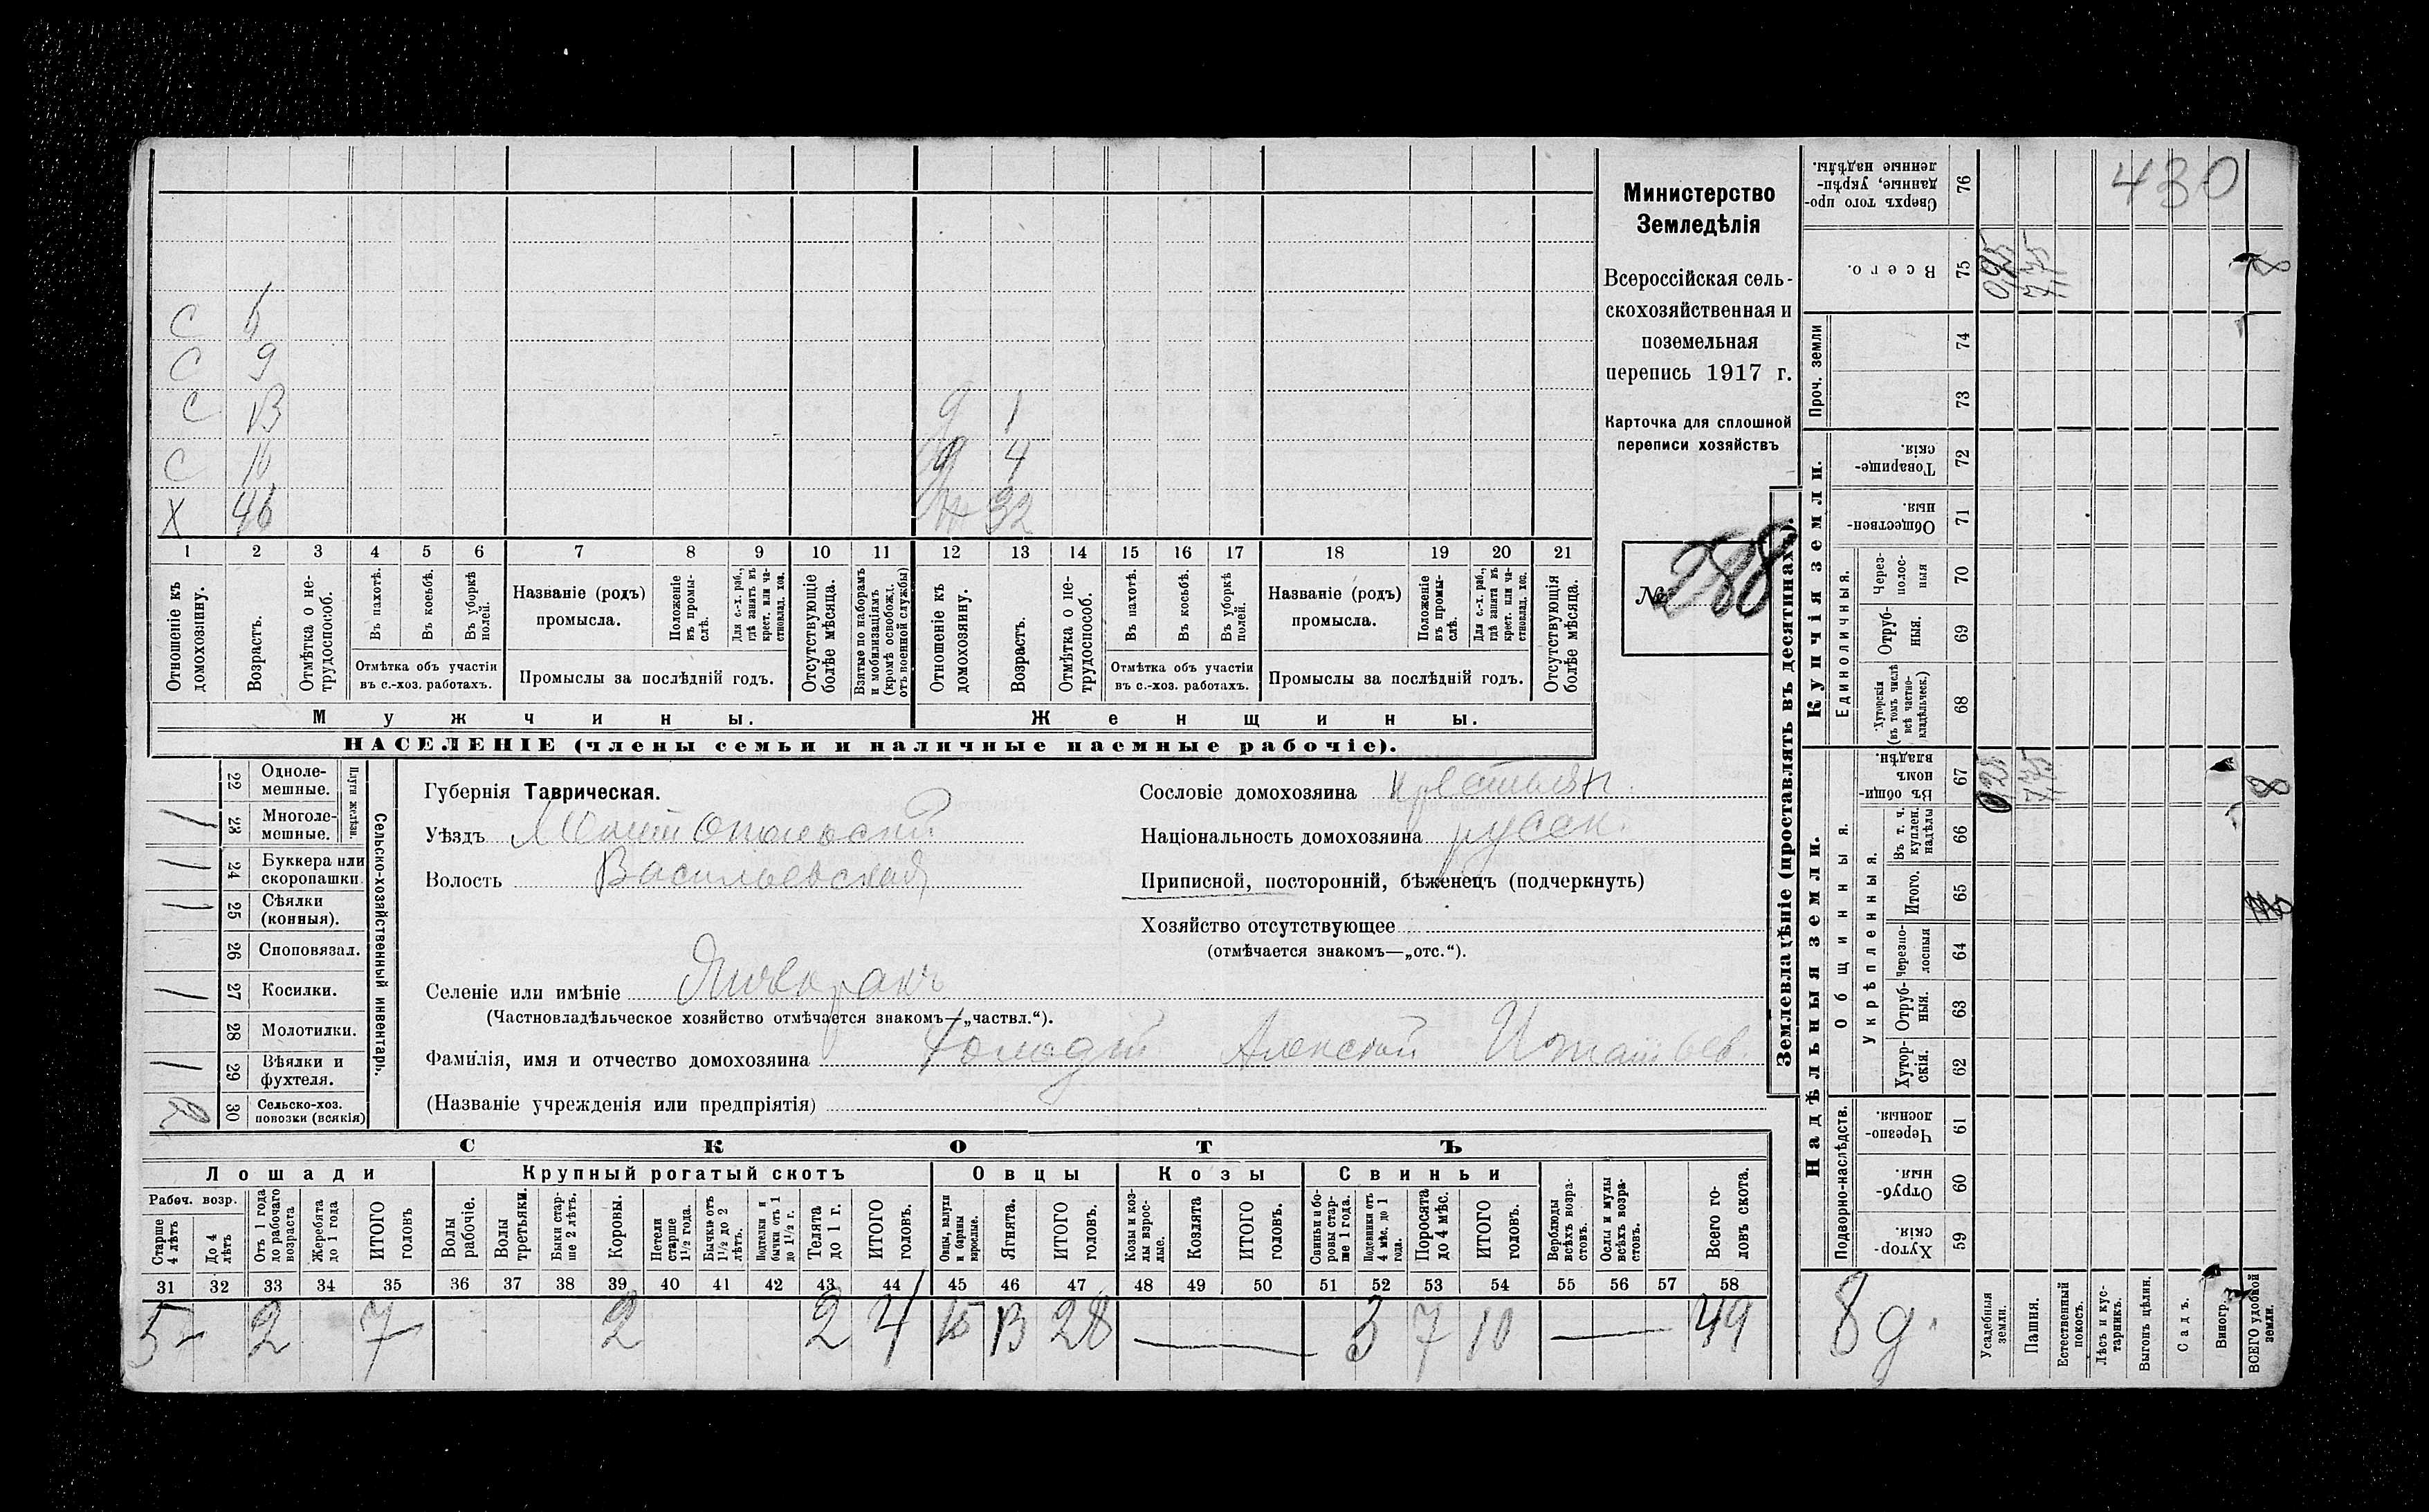 430
Министерство
Земледѣлія
Всероссійская сель-
скохозяйственная и
поземельная
перепись 1917 г.
Карточка для сплошной
переписи хозяйствъ
№ 288
С 6
С 9
С 13
С 10
Х 46
д 1
д 4
ж 32
1 2 3 4 5 6 7 8 9 10 11 12 13 14 15 16 17 18 19 20 21
Отношеніе къ домохозяину.
Возрастъ.
Отмѣтка о не-трудоспособ.
Въ пахотѣ.
Въ косьбѣ.
Въ уборкѣ полей.
Отмѣтка объ участіи
въ с.-хоз. работахъ.
Названіе (родъ)
промысла.
Положеніе въ промы-слѣ.
Для с.-х. раб., гдѣ занятъ въ крест. или ча-стновлад. хоз.
Промыслы за послѣдній годъ.
Отсутствующіе болѣе мѣсяца.
Взятые по наборамъ и мобилизаціямъ (кромѣ освобожд. отъ военной службы)
Отношеніе къ домохозяину.
Возрастъ.
Отмѣтка о не-трудоспособ.
Въ пахотѣ.
Въ косьбѣ.
Въ уборкѣ полей.
Отмѣтка объ участіи
въ с.-хоз. работахъ.
Названіе (родъ)
промысла.
Положеніе въ промы-слѣ.
Для с.-х. раб., гдѣ занята въ крест. или ча-стновлад. хоз.
Промыслы за послѣдній годъ.
Отсутствующія болѣе мѣсяца.
Мужчины.
Женщины.
НАСЕЛЕНІЕ (члены семьи и наличные наемные рабочіе).
Сельско-хозяйственный инвентарь.
Плуги желѣзн.
22 Одноле-мешные.
23 Многоле-мешные. /
24 Буккера или скоропашки. /
25 Сѣялки (конныя). /
26 Споповязал.
27 Косилки. /
28 Молотилки.
29 Вѣялки и фухтеля. /
30 Сельско-хоз. повозки (всякія) 2
Губернія Таврическая.
Уѣздъ Мелитопольскій
Волость Васильевская
Селеніе или имѣніе
(Частновладѣльческое хозяйство отмѣчается знакомъ—„частвл.“).
Фамилія, имя и отчество домохозяина Алексѣй Игнатьев.
(Названіе учрежденія или предпріятія)
Сословіе домохозяина крестьян.
Національность домохозяина русск.
Приписной, посторонній, бѣженецъ (подчеркнуть)
Хозяйство отсутствующее
(отмѣчается знакомъ—„отс.“).
СКОТЪ
Лошади
Крупный рогатый скотъ
Овцы
Козы
Свиньи
Рабоч. возр.
Старше 4 лѣтъ
До 4 лѣтъ
Отъ 1 года до рабочаго возраста
Жеребята до 1 года
ИТОГО головъ
Волы рабочіе.
Волы третьяки.
Быки стар-ше 2 лѣтъ.
Коровы.
Нетели старше 1½ года.
Бычки отъ 1½ до 2 лѣтъ.
Подтелки и бычки отъ 1 до 1½ г.
Телята до 1 г.
ИТОГО головъ.
Овцы, валухи и бараны взрослые.
Ягнята.
ИТОГО головъ.
Козы и коз-лы взрос-лые.
Козлята
ИТОГО головъ.
Свиньи и бо-ровы стар-ше 1 года.
Подсвинки отъ 4 мѣс. до 1 года.
Поросята до 4 мѣс.
ИТОГО головъ.
Верблюды всѣхъ возра-стовъ.
Ослы и мулы всѣхъ возра-стовъ.
Всего го-ловъ скота.
31 32 33 34 35 36 37 38 39 40 41 42 43 44 45 46 47 48 49 50 51 52 53 54 55 56 57 58
5 — 2 7 2 2 4 15 13 28 — 3 7 10 — 49
Землевладѣніе (проставлять въ десятинахъ).
Надѣльныя земли.
Купчія земли.
Проч. земли
Подворно-наслѣдств.
Общинныя.
Укрѣпленныя.
Единоличныя.
Хутор-скія. 59
Отруб-ныя. 60
Черезпо-лосныя. 61
Хутор-скія. 62
Отруб-ныя. 63
Черезпо-лосныя 64
Итого. 65
Въ т. ч. куплен. надѣлы 66
Въ общи-номъ владѣн. 67 0,25 7,75 8
Хуторскія (въ томъ числѣ всѣ частно-владѣльческ.) 68
Отруб-ныя. 69
Через-полос-ныя 70
Обществен-ныя. 71
Товарище-скія. 72
73
74
Всего. 75 0,25 7,75 8
Сверхъ того про-данные, укрѣп-ленные надѣлы. 76
8 д.
Усадебныя земли.
Пашня.
Естественный покосъ.
Лѣсъ и кус-тарникъ.
Выгонъ цѣлин.
Садъ.
Виногр.
ВСЕГО удобной земли.